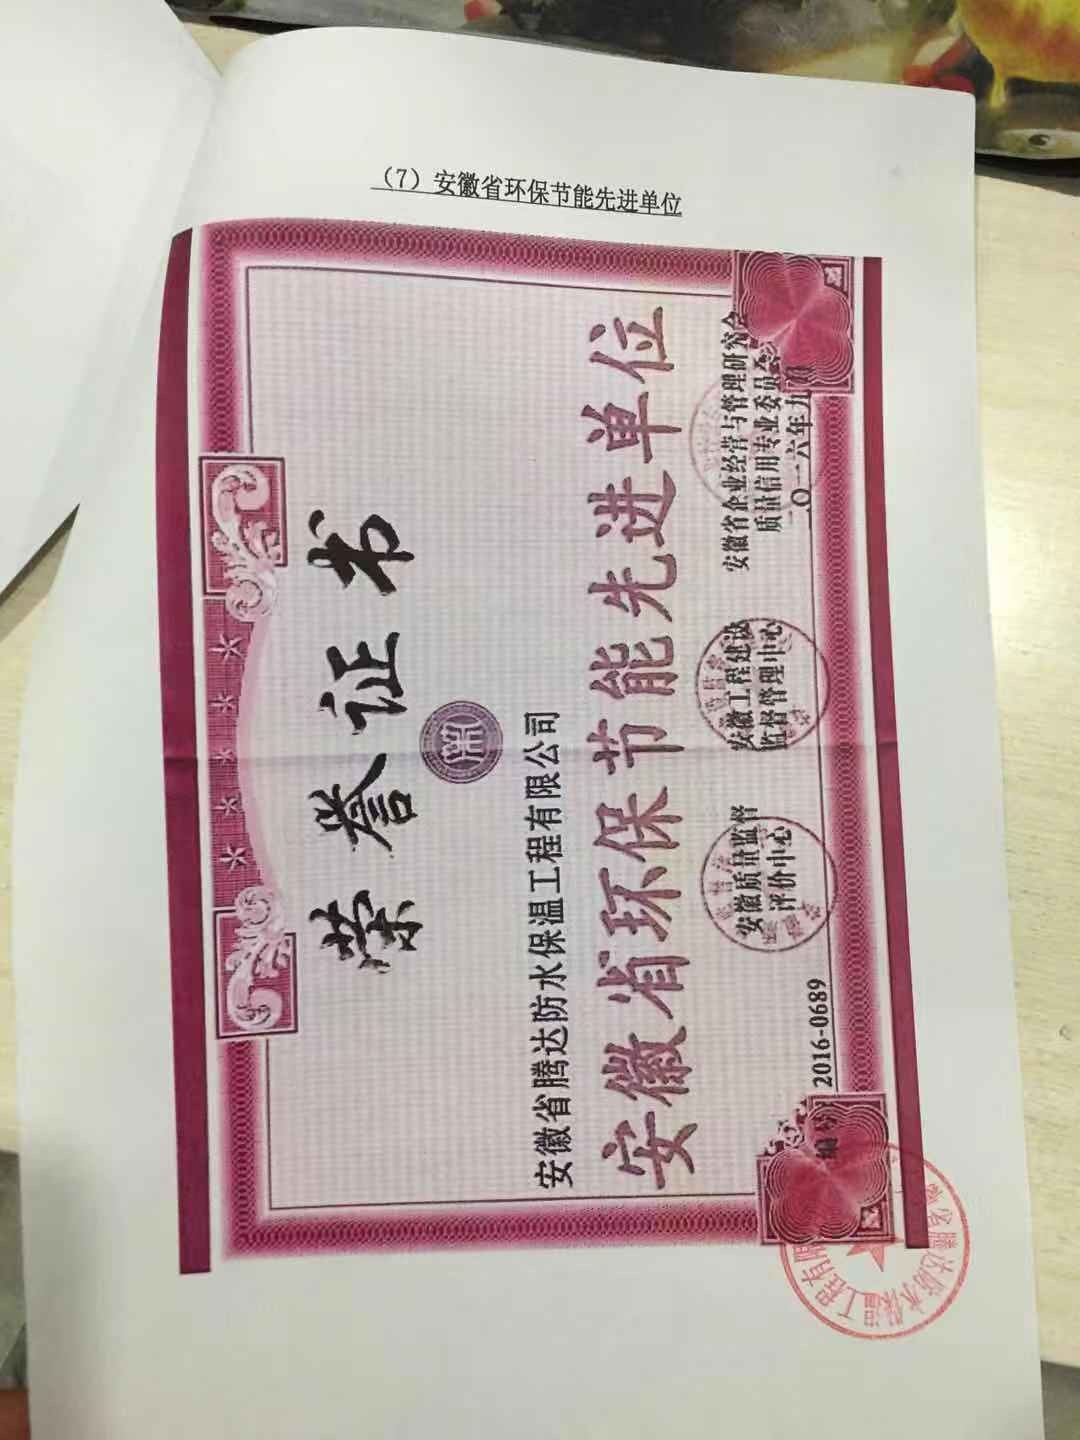 （7）安徽省环保节能先进单位
荣誉证书
安徽省腾达防水保温工程有限公司
安徽省环保节能先进单位
安徽质量监督
评价中心
安徽工程建设
监督管理中心
安徽省企业经营与管理研究会
质量信用专业委员会
二〇一六年九月
编号：2016-0689
安徽省腾达防水保温工程有限